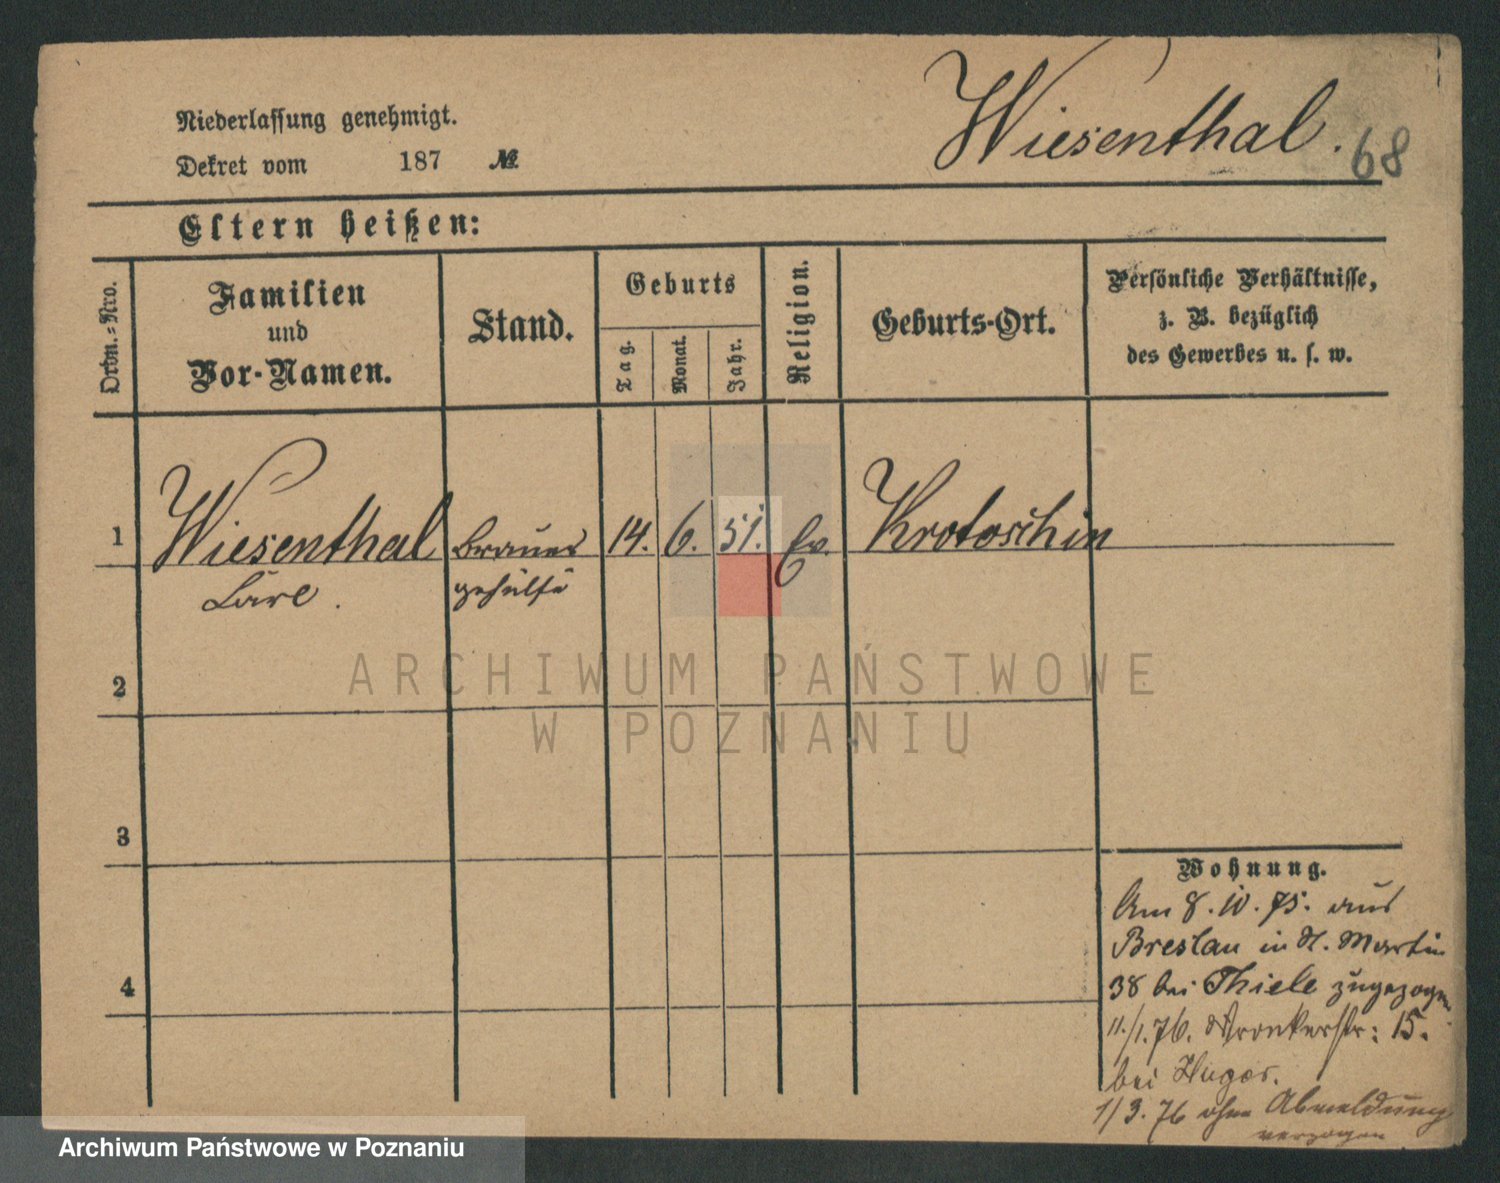 Wiesenthal.
68
Niederlassung genehmigt.
Dekret vom 187 №
Eltern heißen:
Ordn.-Nro.
Familien
und
Vor-Namen.
Stand.
Geburts
Tag.
Monat.
Jahr.
Religion.
Geburts-Ort.
Persönliche Verhältnisse,
z. B. bezüglich
des Gewerbes u. s. w.
1 Wiesenthal Brauer 14. 6. 51. Ev. Krotoschin
Carl. gehülfe
2
3
4
ARCHIWUM PAŃSTWOWE
W POZNANIU
Wohnung.
Am 8. 10. 75. aus
Breslau in St. Martin
38 bei Thiele zugezogen
11./1. 76. Wronkerstr: 15.
bei
1/3. 76 ohne Abmeldung
verzogen
Archiwum Państwowe w Poznaniu